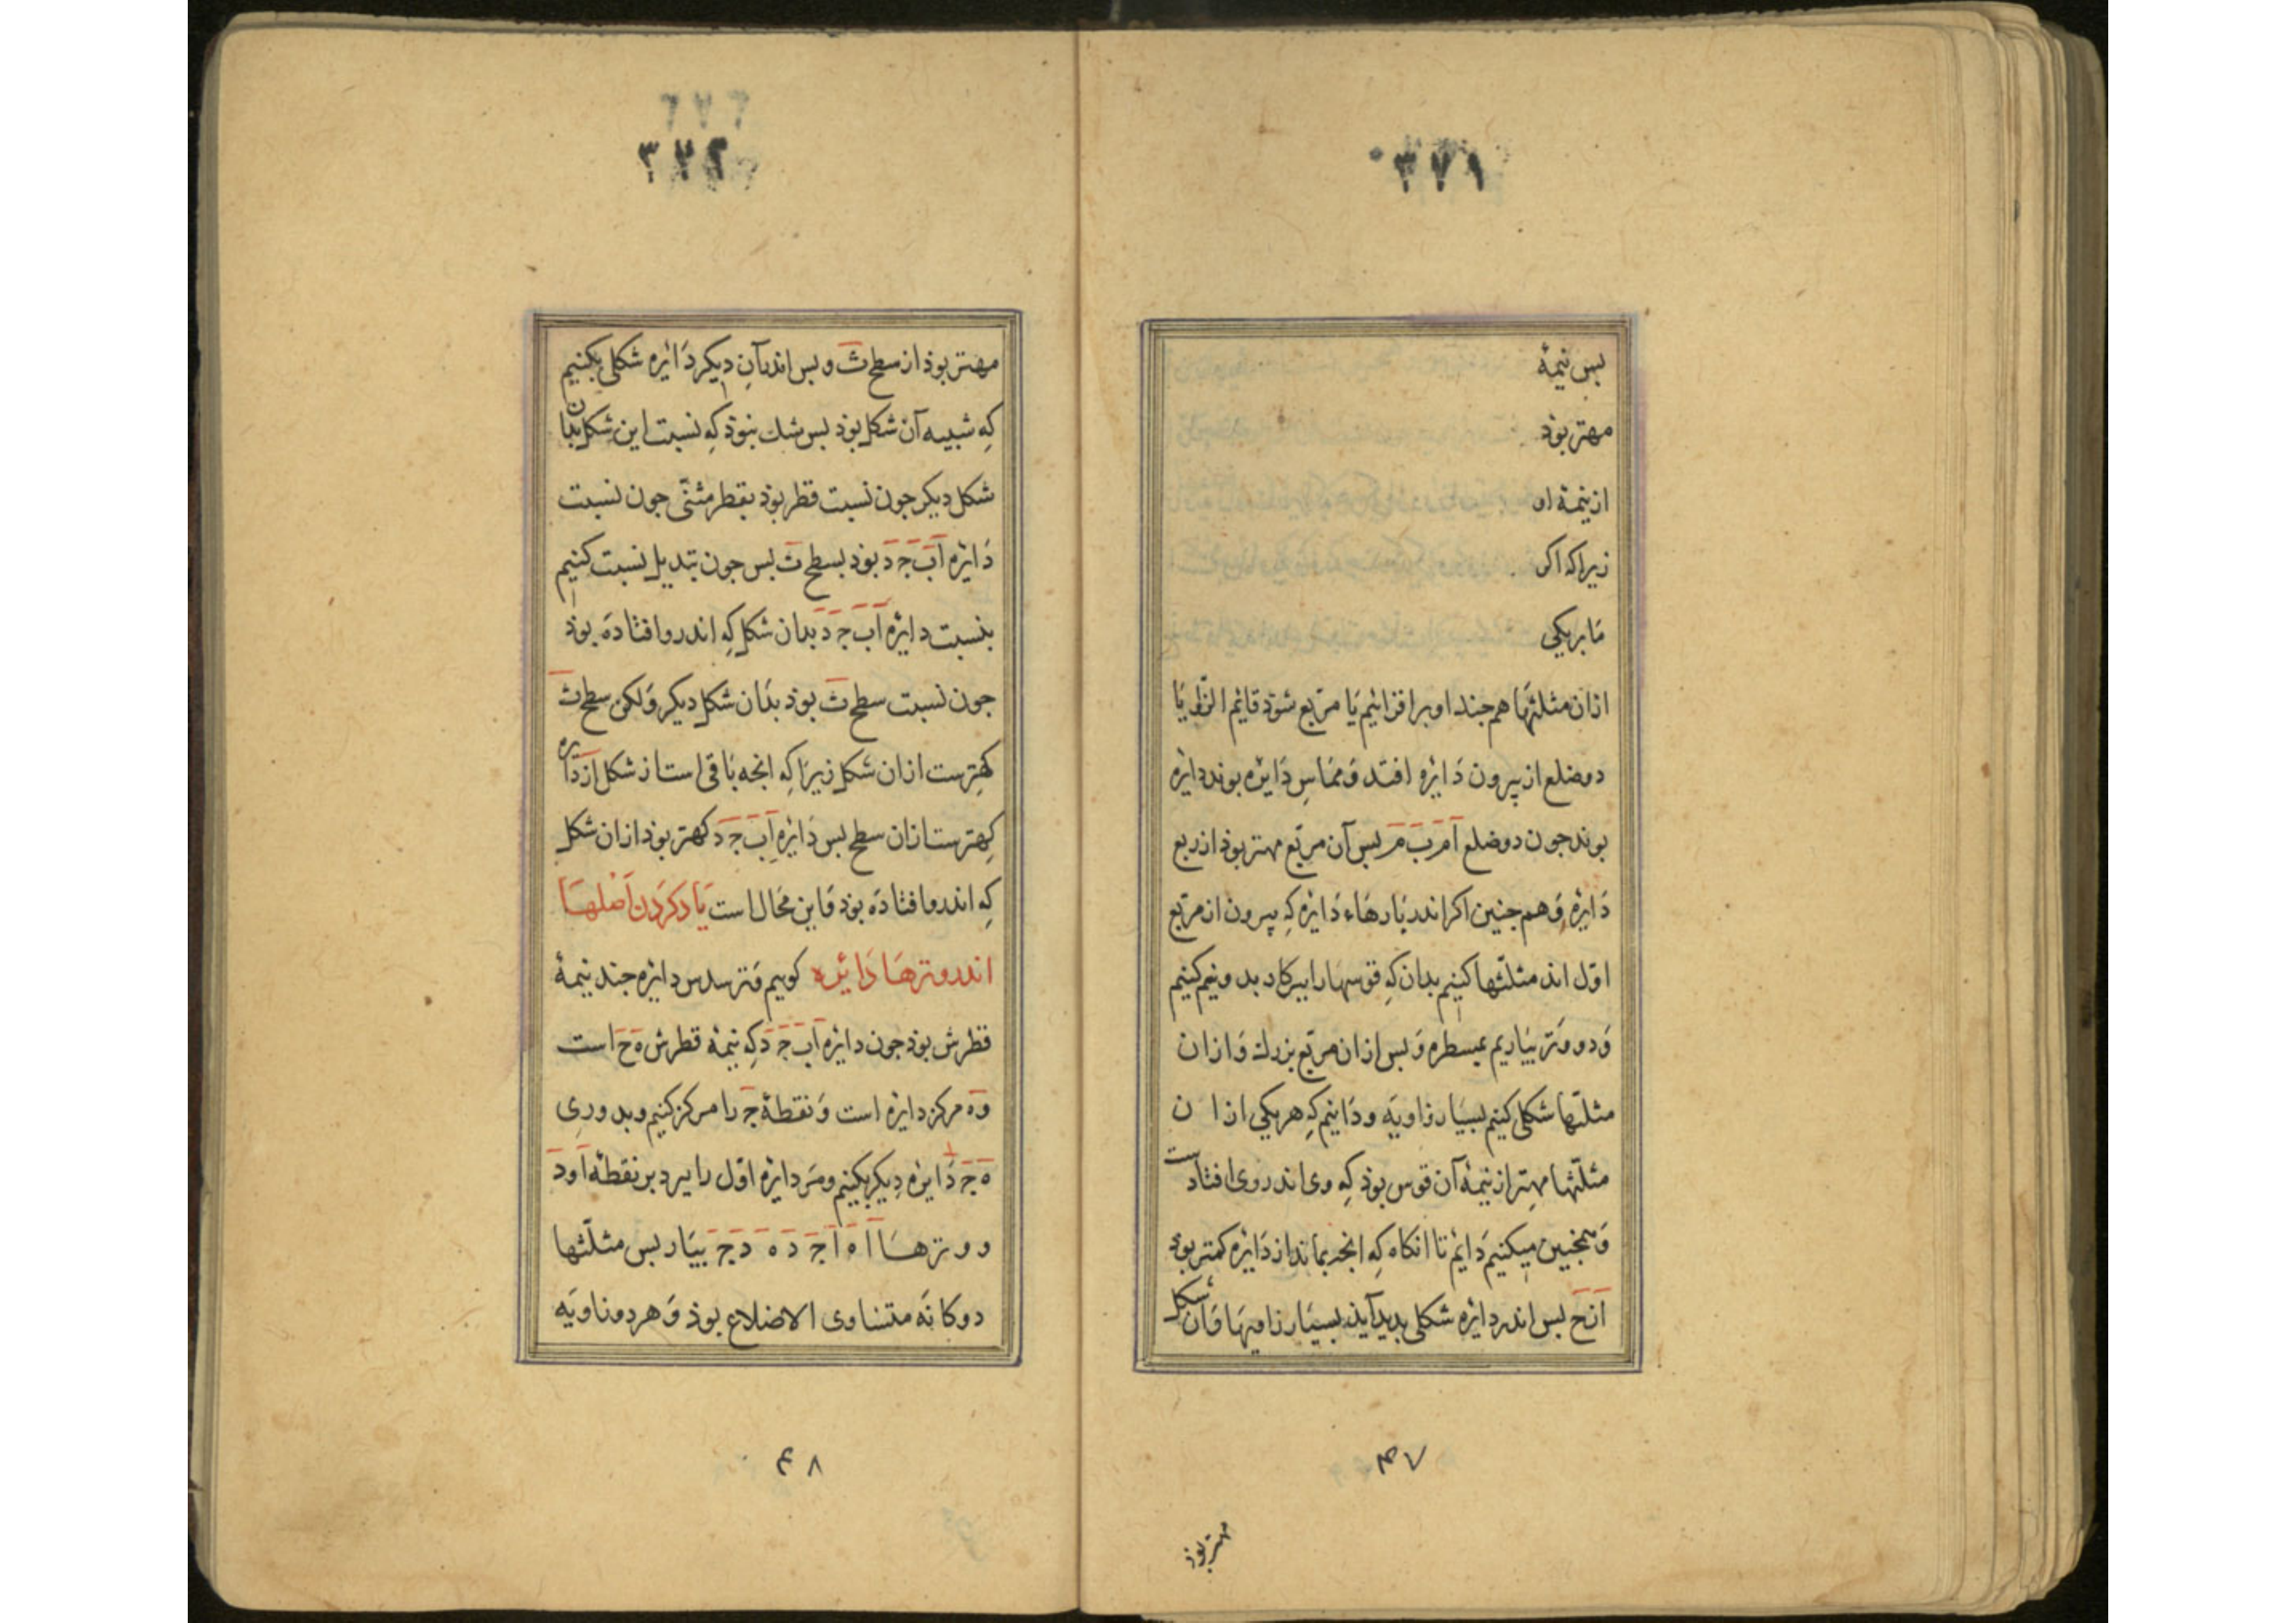 ۳۷۱
بس نیمهٔ
مهتر بوذ
از نیمهٔ او
زیراکه اکر
ما بریکی
ازان مثلثها هم جند او برافزائیم یا مربع شوذ قایم الزوایا
دو ضلع از بیرون دایره افتد و مماس دایره بوند دایره
بوند جون دو ضلع آم بَ م بس آن مربع مهتر بوذ از ربع
دایره و هم جنین اکر اندر بارهاء دایره کِه بیرون از مربع
اوّل اند مثلّثها کنیم بدان کِه قوسها را ببرکار بدو نیم کنیم
وَ دو وَتر بیاریم بمسطره وَ بس ازان مربّع بزرك وَ ازان
مثلّثها شکلی کنیم بسیار زاویَه و دانیم کِه هر یکی ازان
مثلّثها مهتر از نیمهٔ آن قوس بوذ کِه وی اندر وی افتاذست
وَهمجنین میکنیم دایم تا آنکاه کِه انجه بماند از دایره کمتر بوذ
از ح بس اندر دایره شکلی بدید آیذ بسیار زاویها وَان شکل
۴۷
مهتر بوذ
۳۷۲
مهتر بوذ از سطح ث و بس اندر آنِ دیکر دَایره شکلی بکنیم
کِه شبیه آن شکل بوذ بس شك نبوذ کِه نسبت این شکل بذان
شکل دیکر جون نسبت قطر بوذ بقطر مثنّی جون نسبت
دَایره آ ب ج د بوذ بسطح ث بس جون تبدیل نسبت کنیم
نسبت دایره آ ب ج د بدان شکل کِه اندرو افتاده بوذ
جون نسبت سطح ث بوذ بدان شکل دیکر وَلکن سطح ث
کِهترست ازان شکل زیرا کِه انجه باقی است از شکل از دایره
کِهترست ازان سطح بس دَایره آ ب ج د کهتر بوذ ازان شکل
کِه اندرو افتاده بوذ وَاین محَال است یَاد کَردن اَصلهَا
اندر وترهَا دَایره کوییم وَتر سدس دایره جند نیمهٔ
قطرش بوذ جون دایره آ ب ج د کِه نیمهٔ قطرش ه ح است
و ه مرکز دایره است وَ نقطهٔ ج را مرکز کنیم و بدوری
ه ج دَایره دِیکر بکنیم و مر دایره اوّل را ببرد بر نقطهٔ آ و د
و وترهَا آ ه آ ج د ه د ج بیار بس مثلّثها
دوکانَه متساوی الاضلاع بوذ وَ هر دو زاویَه
۴۸